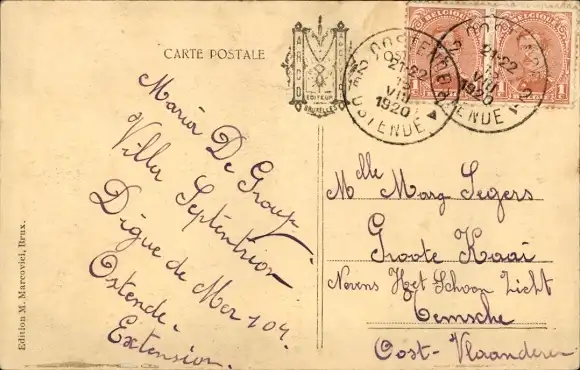 CARTE POSTALE
MARCO
EDITEUR
BRUXELLES
BELGIQUE
1 1
OOSTENDE 2
21-22
VIII
1920
OSTENDE
OOSTENDE 2
21-22
VIII
1920
OSTENDE
Maria De Groof
Villa Septentrion
Digue de Mer 104.
Ostende.
Extension.
Mlle Marg Segers
Groote Kaai
Nevens Het Schoon Zicht
Temsche
Oost-Vlaanderen
Edition M. Marcovici, Brux.